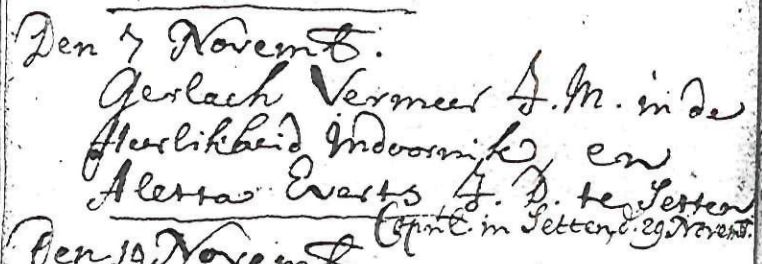 Den 7 Novemb.
Gerlach Vermeer J. M. in de
Heerlikheid Indoornik, en
Aletta Everts J. D. te Setten
Copul. in Setten, d. 29 Novemb.
Den 14 Novemb.